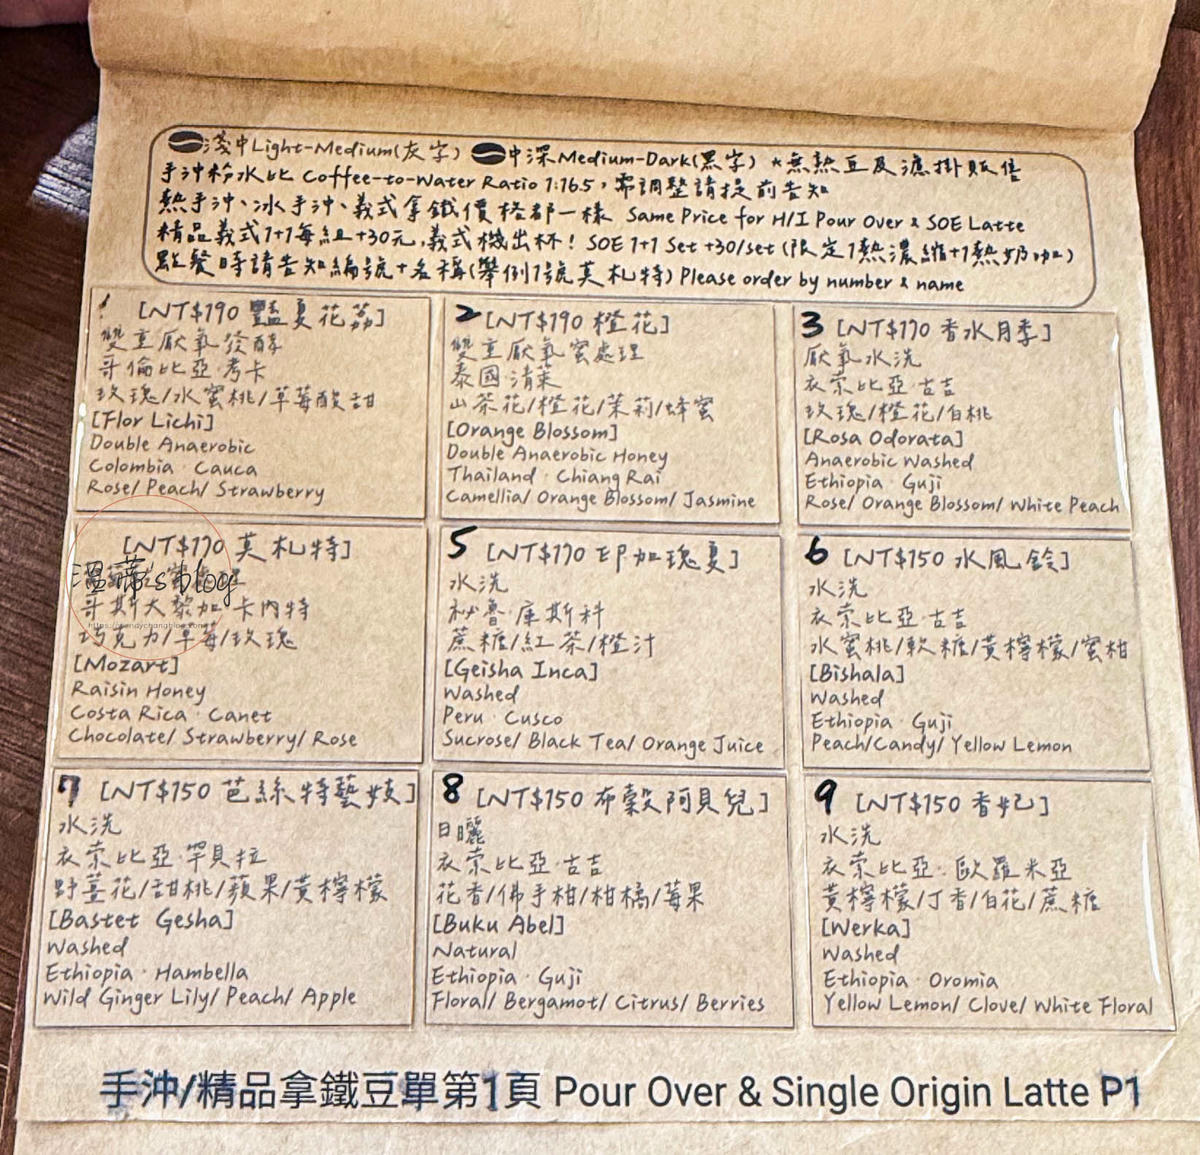 淺中Light-Medium(灰字) 中深Medium-Dark(黑字) *無熟豆及濾掛販售
手沖粉水比 Coffee-to-Water Ratio 1:16.5，需調整請提前告知
熱手沖、冰手沖、義式拿鐵價格都一樣 Same Price for H/I Pour Over & SOE Latte
精品義式1+1每組+30元,義式機出杯! SOE 1+1 Set +30/set (限定1熱濃縮+1熱奶咖)
點餐時請告知編號+名稱(舉例1號莫札特) Please order by number & name
1 [NT$190 豔夏花荔]
雙重厭氧發酵
哥倫比亞·考卡
玫瑰/水蜜桃/草莓酸甜
[Flor Lichi]
Double Anaerobic
Colombia · Cauca
Rose/ Peach/ Strawberry
2 [NT$190 橙花]
雙重厭氧蜜處理
泰國·清萊
山茶花/橙花/茉莉/蜂蜜
[Orange Blossom]
Double Anaerobic Honey
Thailand · Chiang Rai
Camellia/ Orange Blossom/ Jasmine
3 [NT$170 香水月季]
厭氧水洗
衣索比亞·古吉
玫瑰/橙花/白桃
[Rosa Odorata]
Anaerobic Washed
Ethiopia · Guji
Rose/ Orange Blossom/ White Peach
[NT$170 莫札特]
溫蒂's blog
哥斯大黎加·卡內特
巧克力/草莓/玫瑰
[Mozart]
Raisin Honey
Costa Rica · Canet
Chocolate/ Strawberry/ Rose
5 [NT$170 印加瑰夏]
水洗
祕魯·庫斯科
蔗糖/紅茶/橙汁
[Geisha Inca]
Washed
Peru · Cusco
Sucrose/ Black Tea/ Orange Juice
6 [NT$150 水風鈴]
水洗
衣索比亞·古吉
水蜜桃/軟糖/黃檸檬/蜜柑
[Bishala]
Washed
Ethiopia · Guji
Peach/Candy/ Yellow Lemon
7 [NT$150 芭絲特藝妓]
水洗
衣索比亞·罕貝拉
野薑花/甜桃/蘋果/黃檸檬
[Bastet Gesha]
Washed
Ethiopia · Hambella
Wild Ginger Lily/ Peach/ Apple
8 [NT$150 布穀阿貝兒]
日曬
衣索比亞·古吉
花香/佛手柑/柑橘/莓果
[Buku Abel]
Natural
Ethiopia · Guji
Floral/ Bergamot/ Citrus/ Berries
9 [NT$150 香妃]
水洗
衣索比亞·歐羅米亞
黃檸檬/丁香/白花/蔗糖
[Werka]
Washed
Ethiopia · Oromia
Yellow Lemon/ Clove/ White Floral
手沖/精品拿鐵豆單第1頁 Pour Over & Single Origin Latte P1